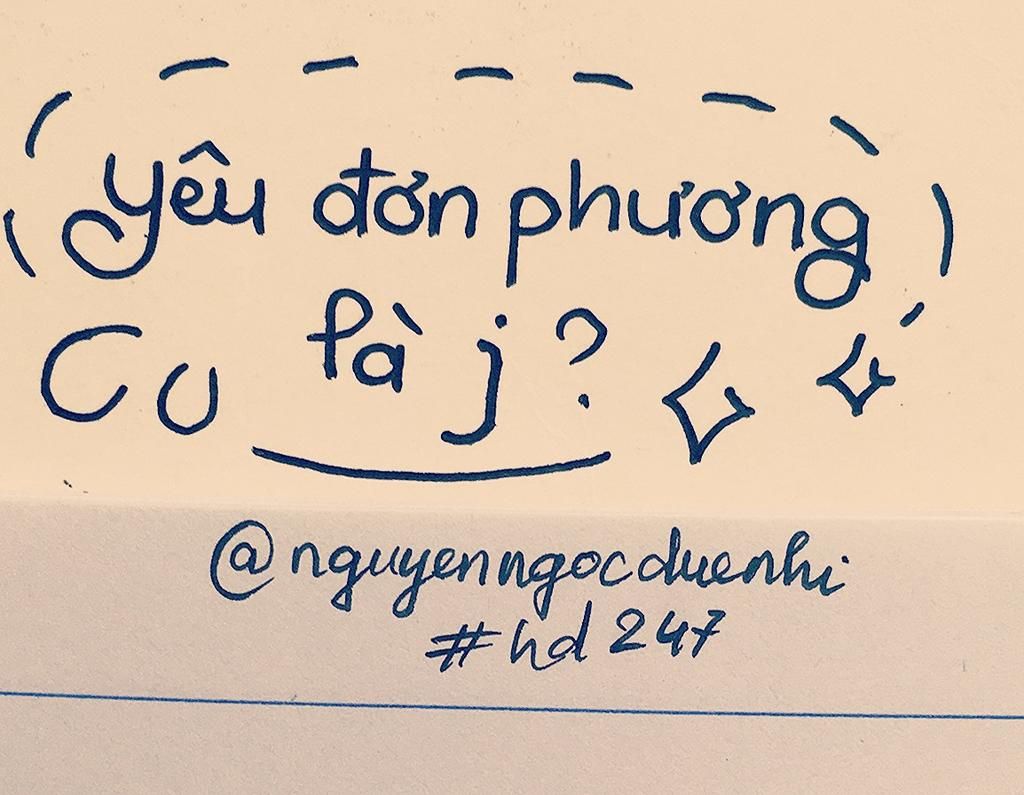 yêu đơn phương
là j ?
@nguyenngocduenhi
#hd247